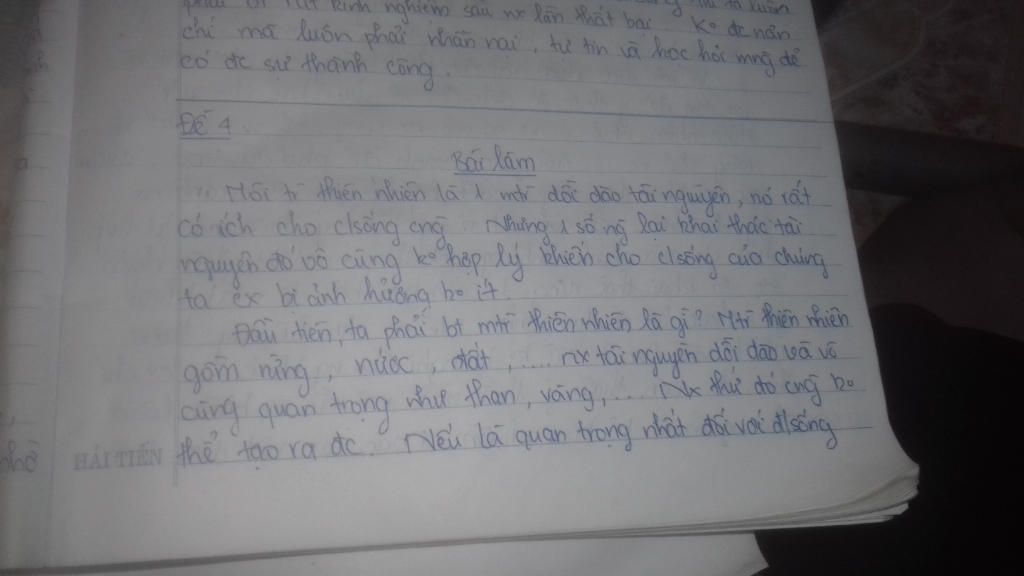 phải bt rút kinh nghiệm sau nx lần thất bại Ko đc nản
chí mà luôn phải nhẫn nại, tự tin và học hỏi mng để
có đc sự thành công.
Đề 4
Bài làm
Môi tr thiên nhiên là 1 mtr dồi dào tài nguyên, nó rất
có ích cho c/sống cng Nhưng 1 số ng lại khai thác tài
nguyên đó vô cùng ko hợp lý khiến cho c/sống của chúng
ta cx bị ảnh hưởng ko ít.
Đầu tiên, ta phải bt mtr thiên nhiên là gì? Mtr thiên nhiên
gồm rừng, nước, đất, .... nx tài nguyên dồi dào và vô
cùng quan trọng như than, vàng, ... Nx thứ đó cng ko
thể tạo ra đc. Nếu là quan trọng nhất đối với đ/sống
nhờ
HẢI TIẾN